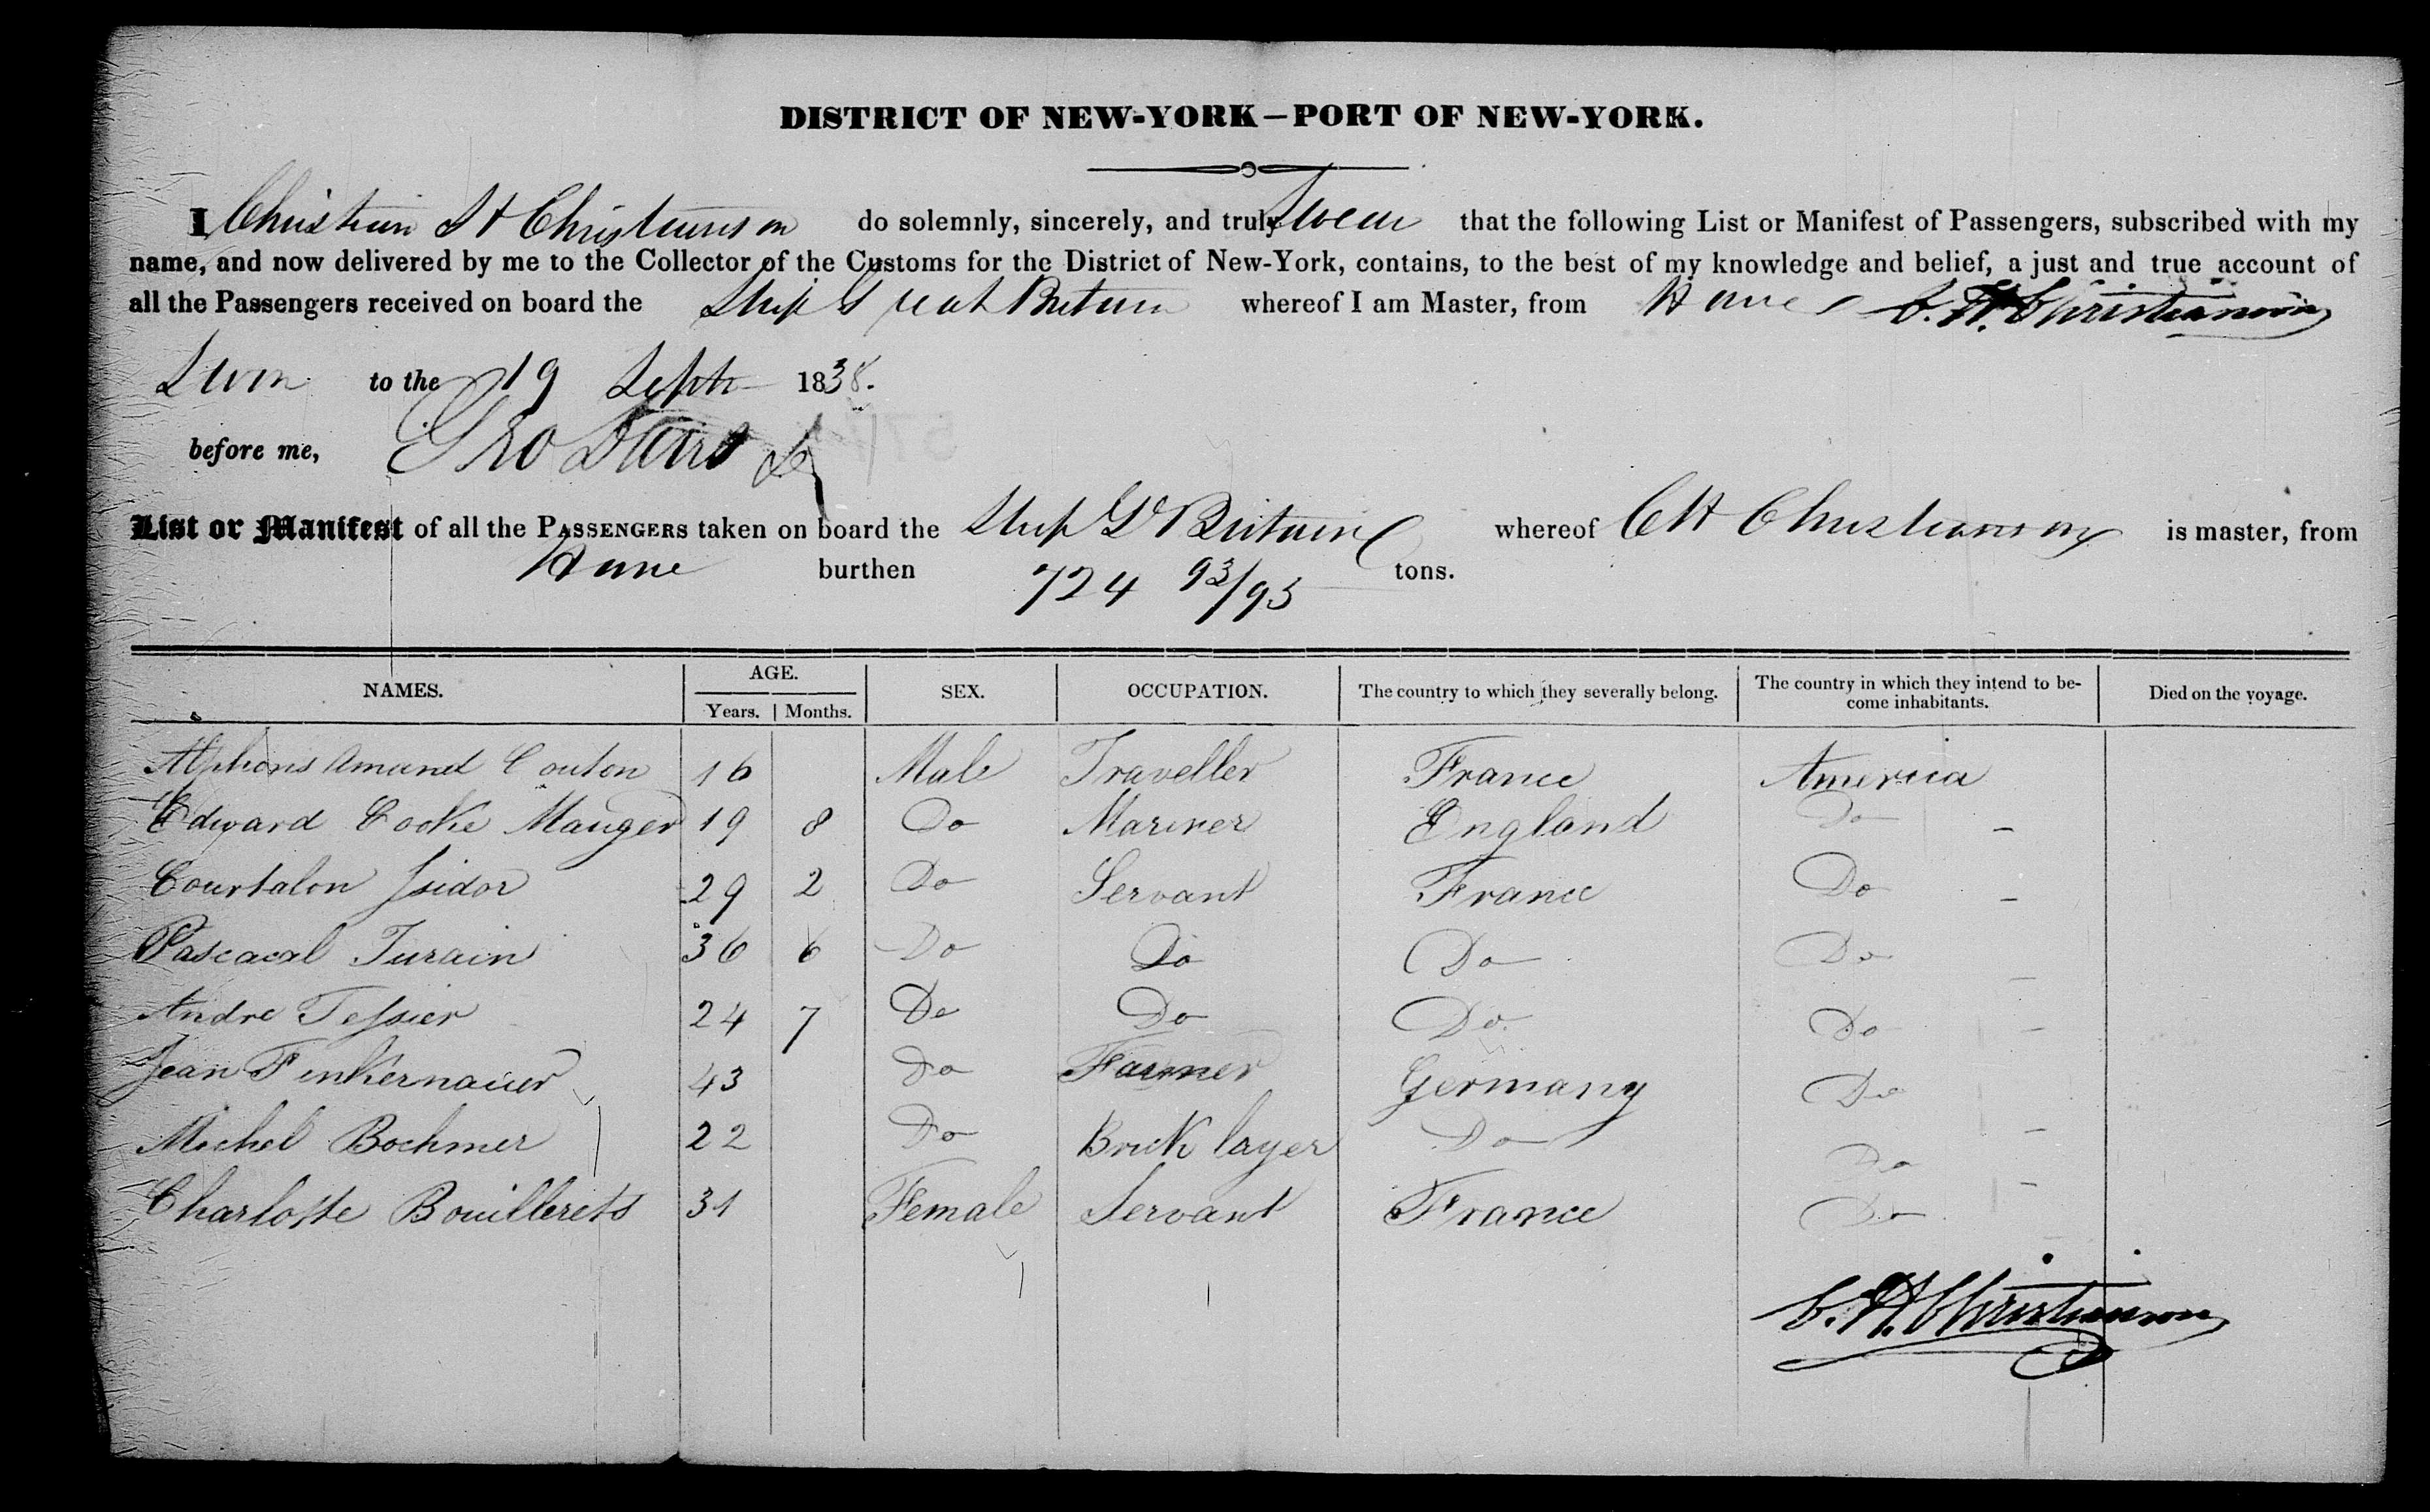 DISTRICT OF NEW-YORK—PORT OF NEW-YORK.
I Christian H Christianson do solemnly, sincerely, and truly Swear that the following List or Manifest of Passengers, subscribed with my
name, and now delivered by me to the Collector of the Customs for the District of New-York, contains, to the best of my knowledge and belief, a just and true account of
all the Passengers received on board the Ship Great Britain whereof I am Master, from Havre C. H. Christianson
Sworn to the 19 Septr 1838.
before me, Geo Davis
List or Manifest of all the PASSENGERS taken on board the Ship Gt Britain whereof CH Christianson is master, from
Havre burthen 724 93/95 tons.
NAMES. AGE. Years. Months. SEX. OCCUPATION. The country to which they severally belong. The country in which they intend to become inhabitants. Died on the voyage.
Alphons Amand Couton 16 Male Traveller France America
Edward Cooke Mauger 19 8 Do Mariner England Do -
Courtalon Isidor 29 2 Do Servant France Do -
Pascacal Turain 36 6 Do Do Do Do -
Andre Tessier 24 7 Do Do Do Do -
Jean Finkernauer 43 Do Farmer Germany Do
Michel Bochmer 22 Do Brick layer Do - Do
Charlotte Bouillerets 31 Female Servant France - Do
C. H. Christianson